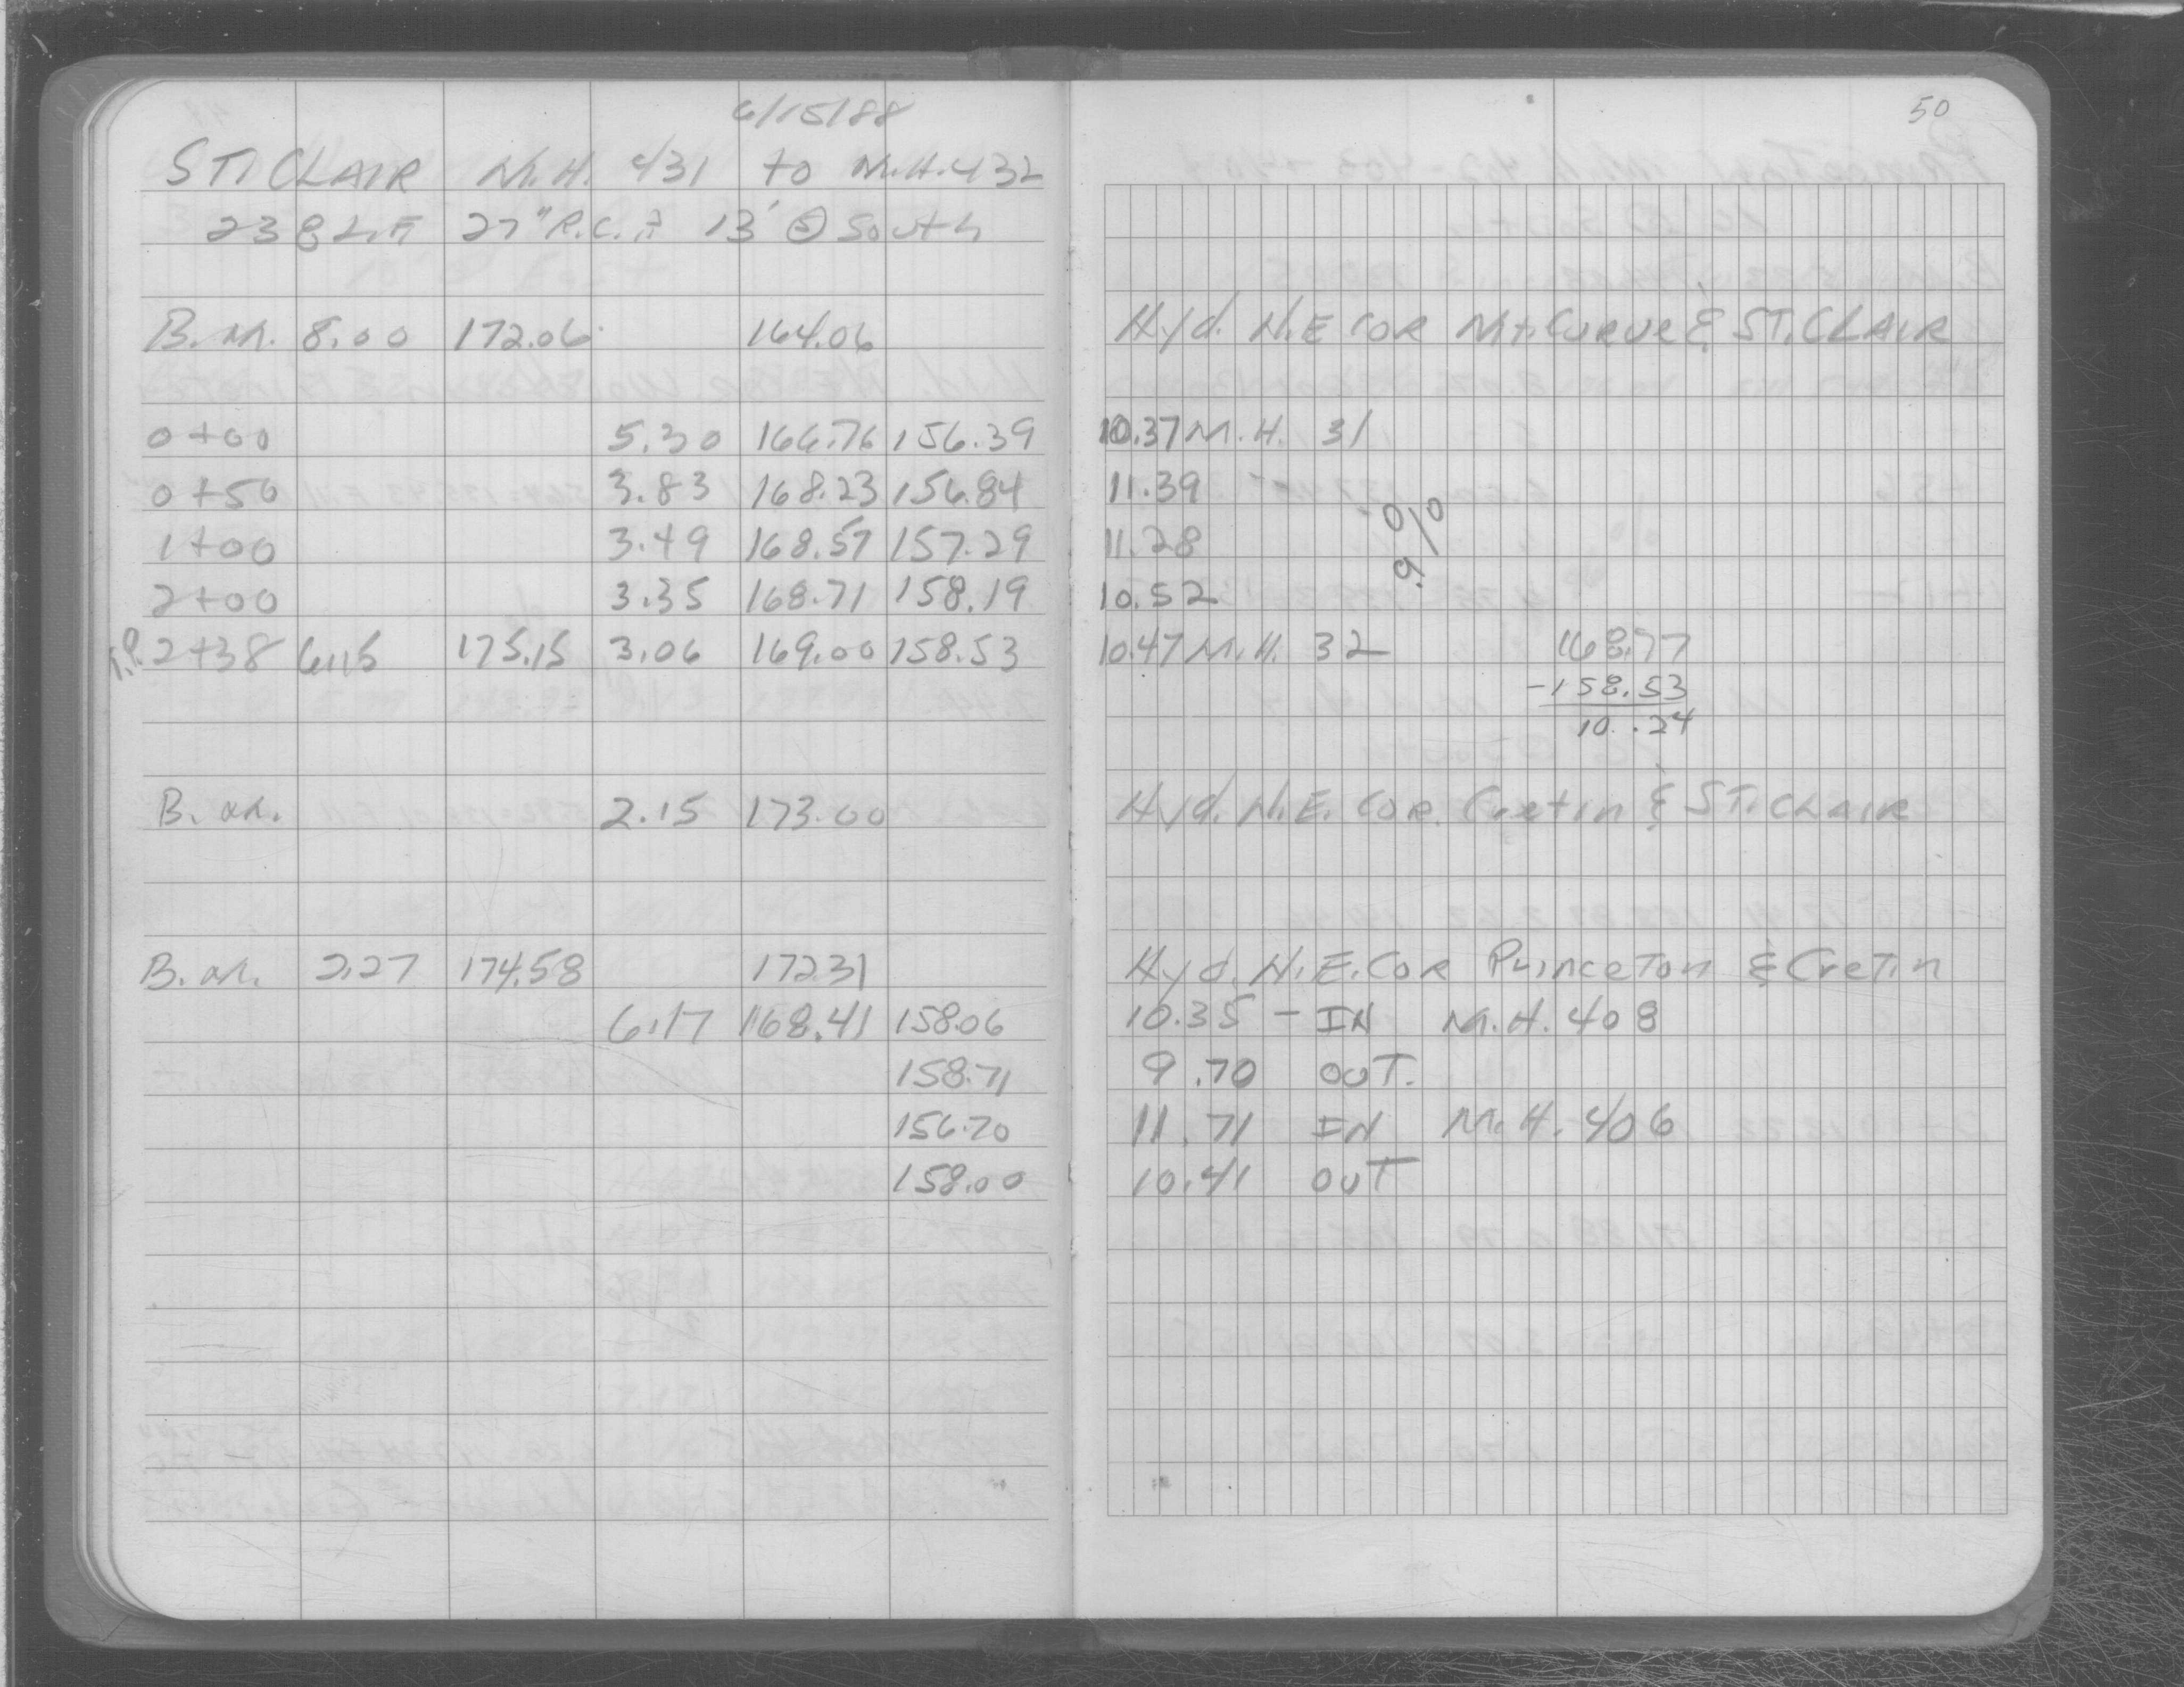 6/15/88
ST. CLAIR M.H. 431 to M.H. 432
238 L.F. 27" R.C.P. 13' @ South
B.M. 8.00 172.06 164.06
0+00 5.30 166.76 156.39
0+50 3.83 168.23 156.84
1+00 3.49 168.57 157.29
2+00 3.35 168.71 158.19
T.P. 2+38 6.15 175.15 3.06 169.00 158.53
B.M. 2.15 173.00
B.M. 2.27 174.58 172.31
6.17 168.41 158.06
158.71
156.70
158.00
50
Hyd. N.E COR Mt. Curve & ST. CLAIR
10.37 M.H. 31
11.39
11.28
.9%
10.52
10.47 M.H. 32 168.77
-158.53
10.24
Hyd. N.E. COR. Cretin & ST. CLAIR
Hyd. N.E. COR Princeton & Cretin
10.35 - IN M.H. 408
9.70 OUT.
11.71 IN M.H. 406
10.41 OUT